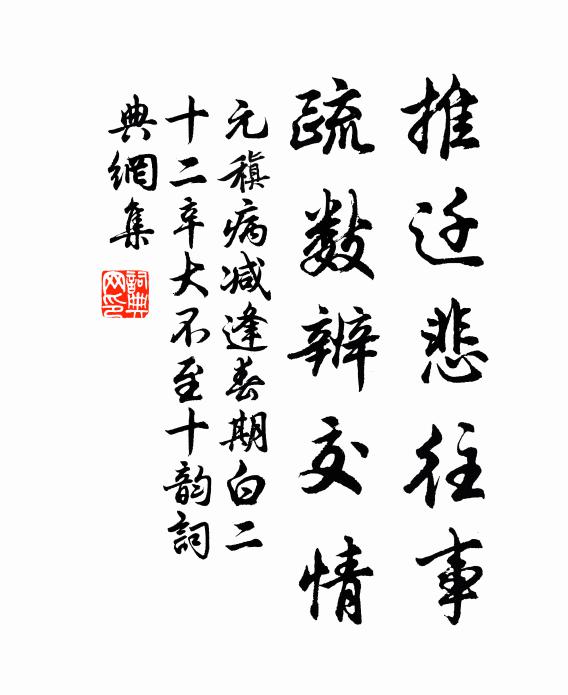 推迁悲往事
疏数辨交情
元稹病减逢春期白二
十二辛大不至十韵詞
典網集
詞典网印